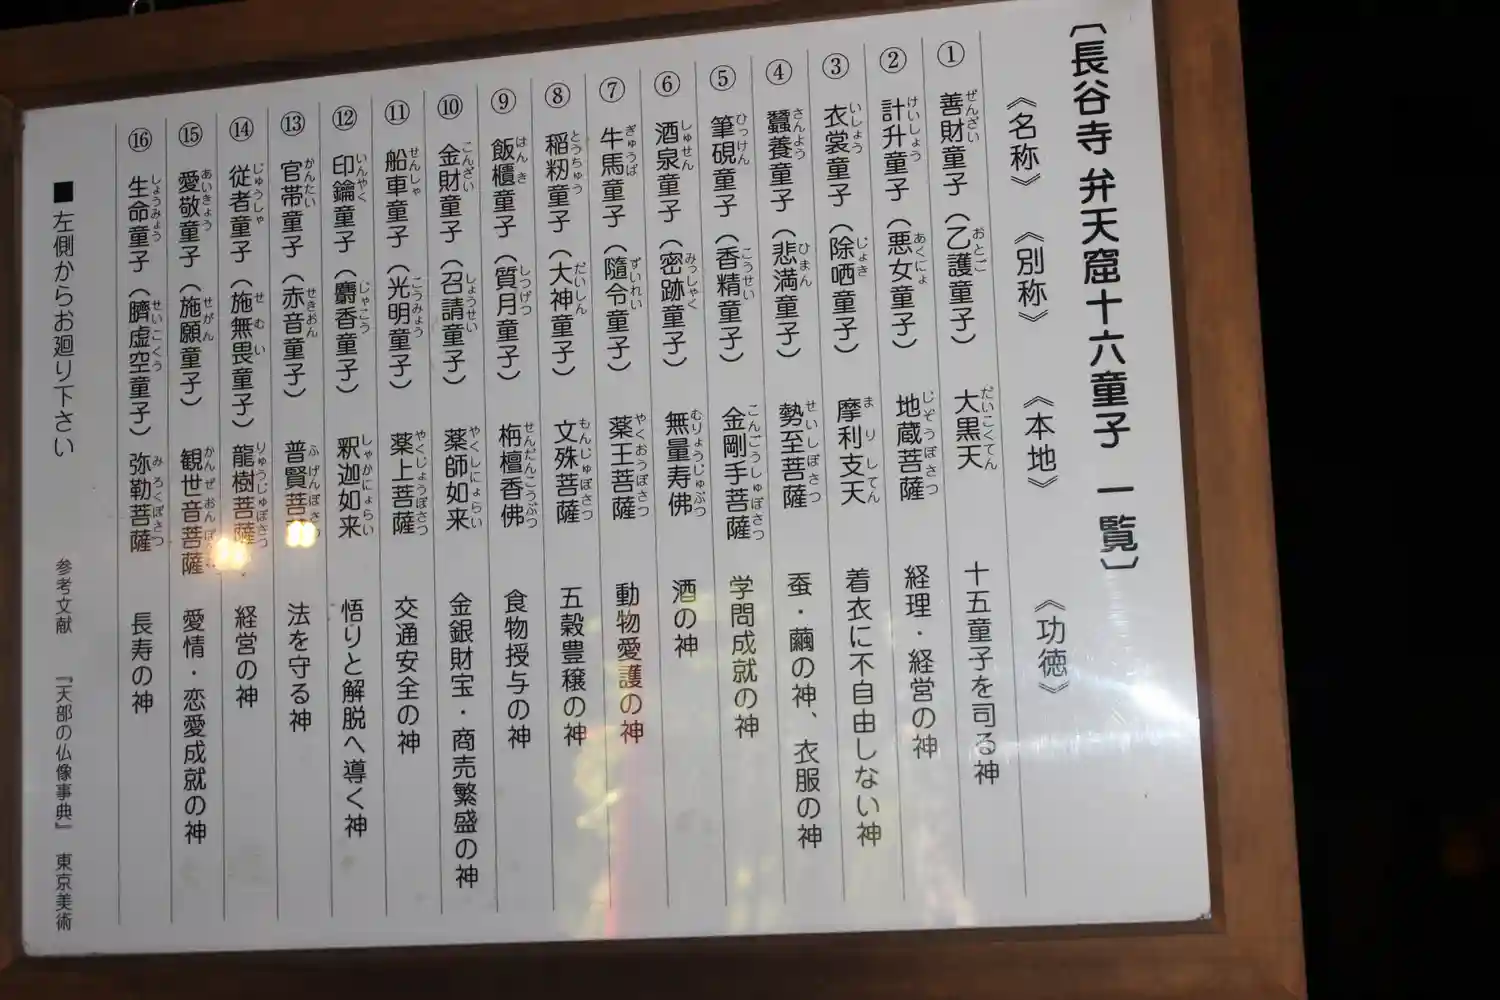 〔長谷寺 弁天窟十六童子 一覧〕
《名称》 《別称》 《本地》 《功徳》
① 善財童子（乙護童子） 大黒天 十五童子を司る神
② 計升童子（悪女童子） 地蔵菩薩 経理・経営の神
③ 衣裳童子（除哂童子） 摩利支天 着衣に不自由しない神
④ 蠶養童子（悲満童子） 勢至菩薩 蚕・繭の神、衣服の神
⑤ 筆硯童子（香精童子） 金剛手菩薩 学問成就の神
⑥ 酒泉童子（密跡童子） 無量寿佛 酒の神
⑦ 牛馬童子（隨令童子） 薬王菩薩 動物愛護の神
⑧ 稲籾童子（大神童子） 文殊菩薩 五穀豊穣の神
⑨ 飯櫃童子（質月童子） 栴檀香佛 食物授与の神
⑩ 金財童子（召請童子） 薬師如来 金銀財宝・商売繁盛の神
⑪ 船車童子（光明童子） 薬上菩薩 交通安全の神
⑫ 印鑰童子（麝香童子） 釈迦如来 悟りと解脱へ導く神
⑬ 官帯童子（赤音童子） 普賢菩薩 法を守る神
⑭ 従者童子（施無畏童子） 龍樹菩薩 経営の神
⑮ 愛敬童子（施願童子） 観世音菩薩 愛情・恋愛成就の神
⑯ 生命童子（臍虚空童子） 弥勒菩薩 長寿の神
■ 左側からお廻り下さい 参考文献 『天部の仏像事典』 東京美術